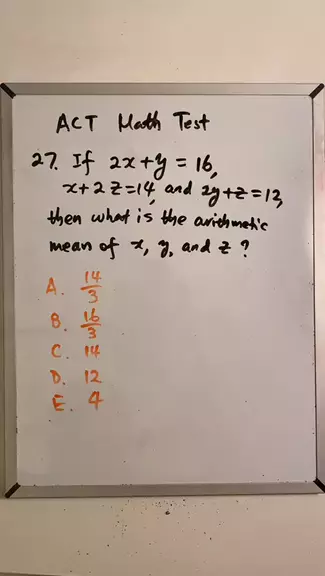 ACT Math Test
27. If 2x+y = 16,
x+2z=14, and 2y+z=12,
then what is the arithmetic
mean of x, y, and z ?
A. 14/3
B. 16/3
C. 14
D. 12
E. 4